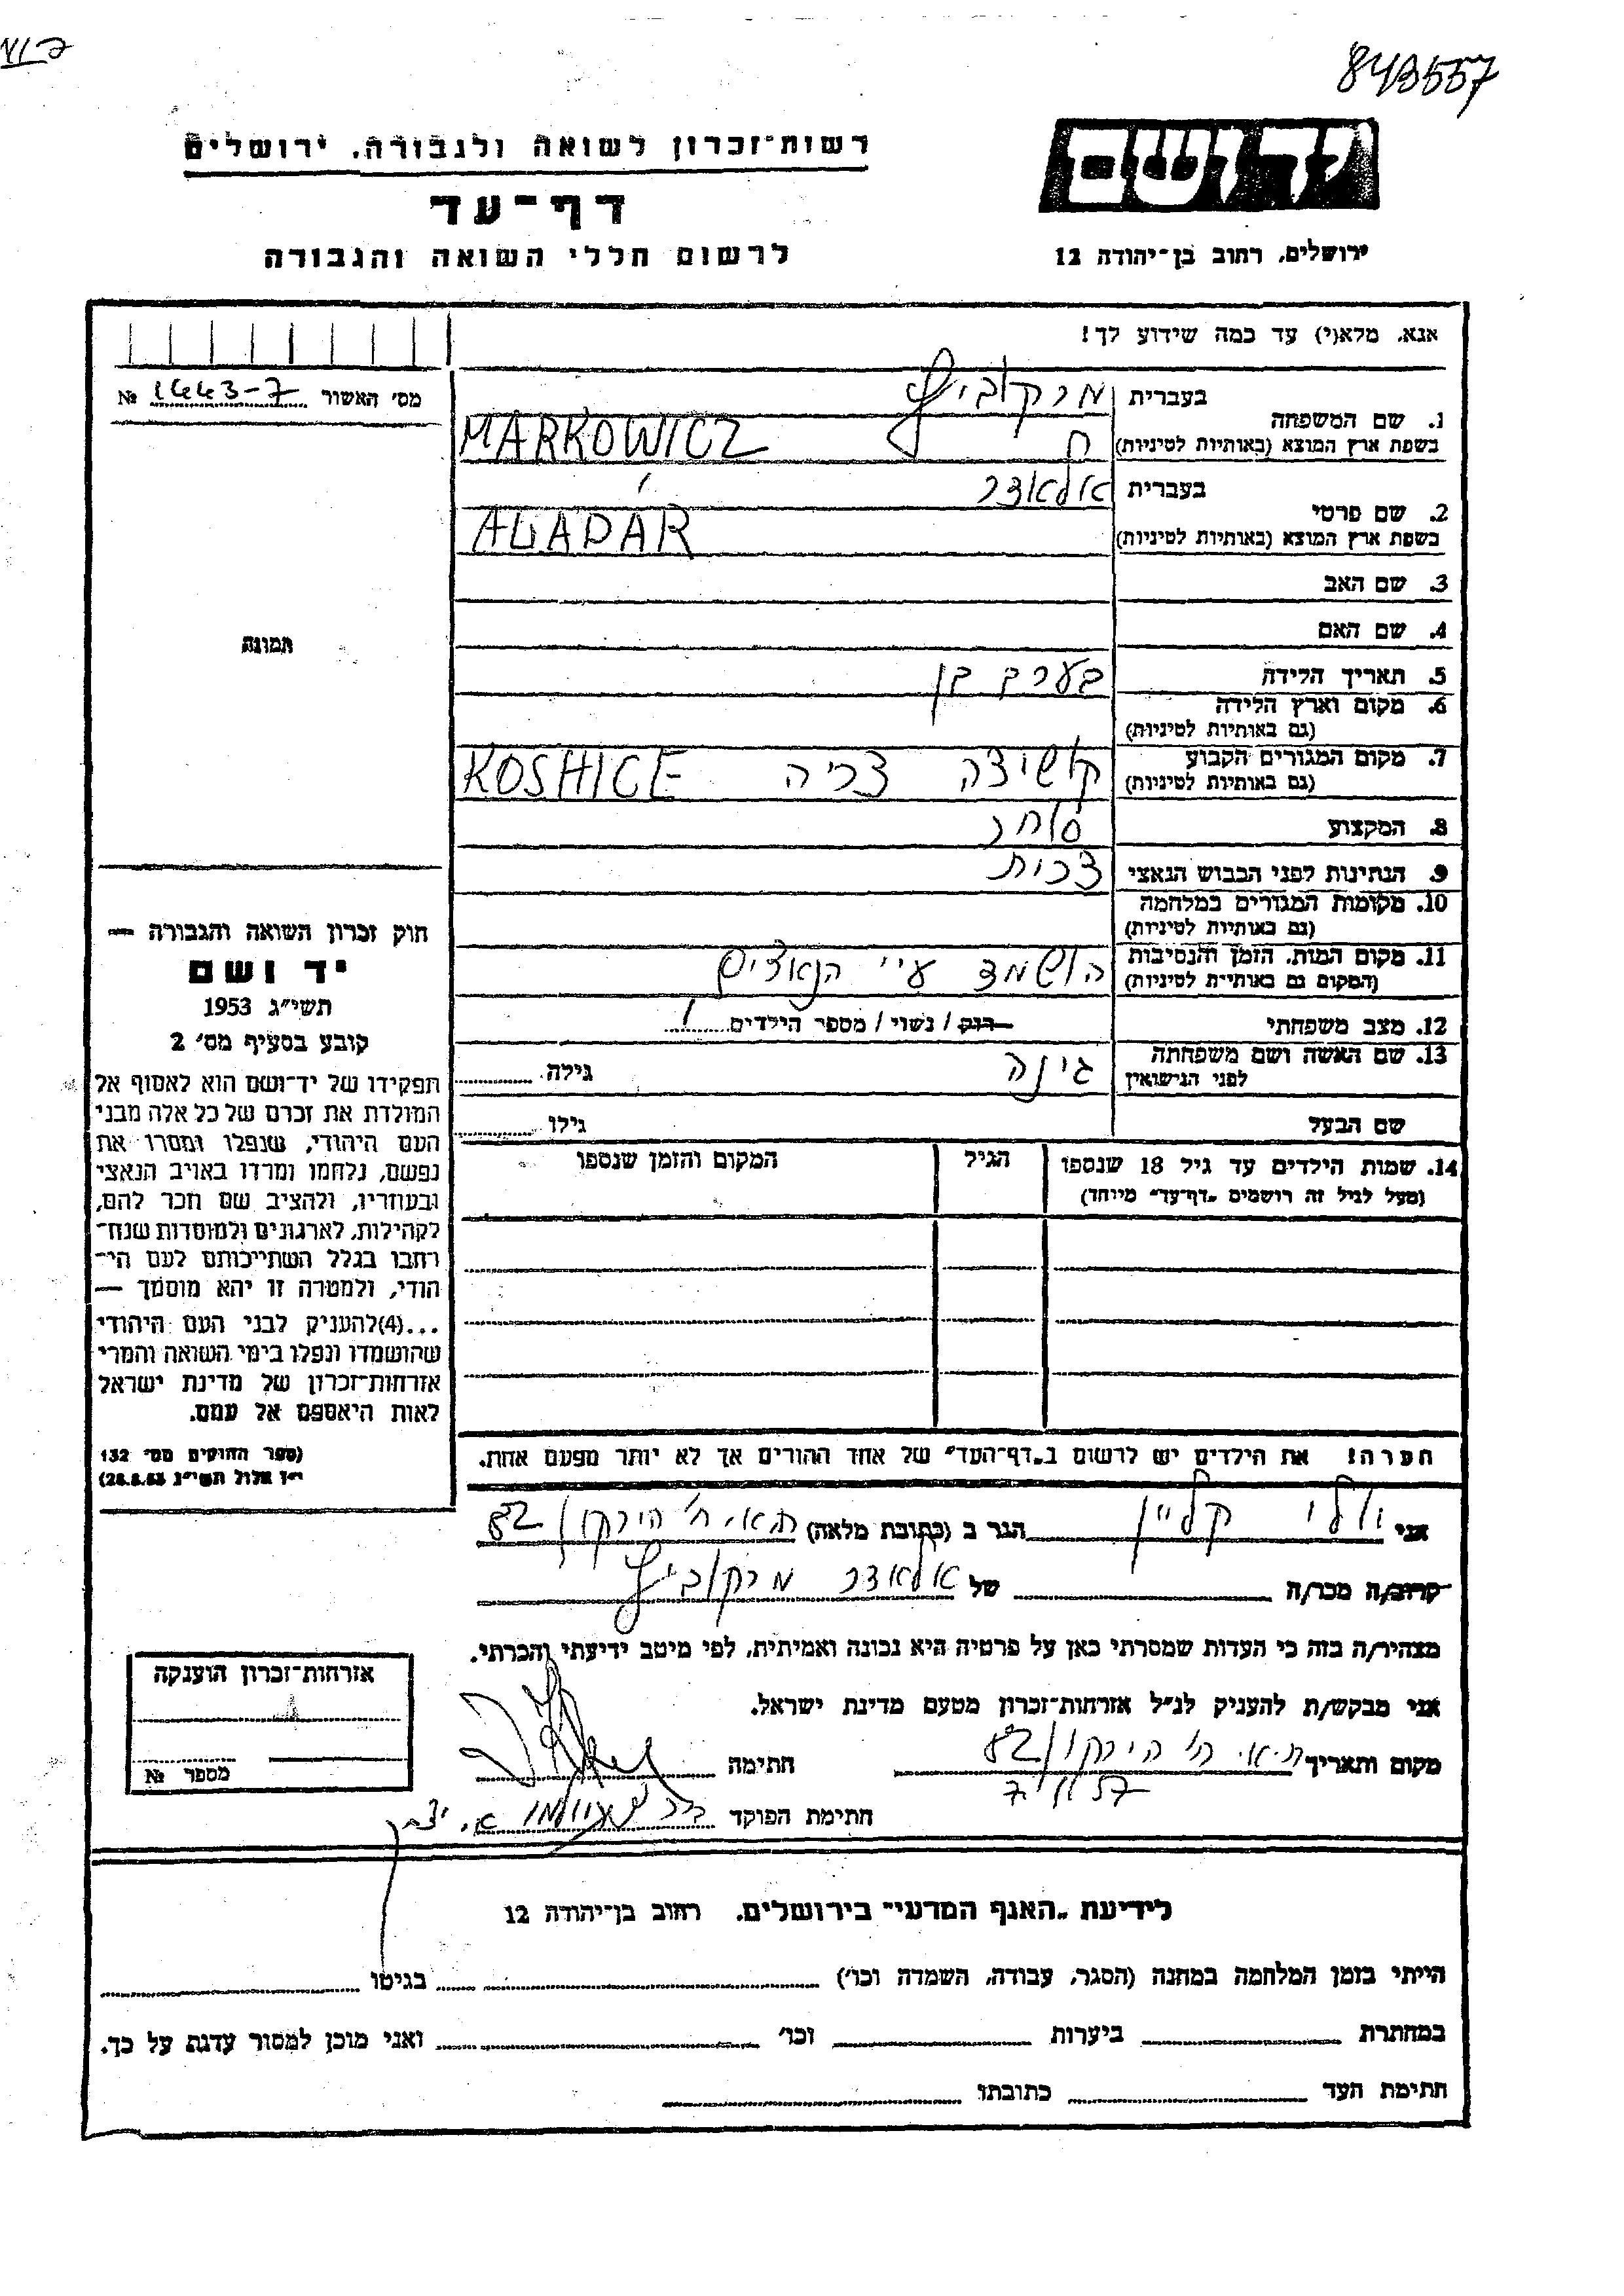 843557
יד ושם
ירושלים, רחוב בן־יהודה 12
רשות־זכרון לשואה ולגבורה, ירושלים
דף־עד
לרשום חללי השואה והגבורה
אנא, מלא(י) עד כמה שידוע לך!
מס׳ האשור 1443-7 №
תמונה
1. שם המשפחה
בעברית מרקוביץ
בשפת ארץ המוצא (באותיות לטיניות) MARKOWICZ
2. שם פרטי
בעברית אלאדר
בשפת ארץ המוצא (באותיות לטיניות)
3. שם האב
4. שם האם
5. תאריך הלידה בערך בן
6. מקום וארץ הלידה
(גם באותיות לטיניות)
7. מקום המגורים הקבוע קושיצה צ׳כיה KOSHICE
(גם באותיות לטיניות)
8. המקצוע סוחר
9. הנתינות לפני הכבוש הנאצי צ׳כית
10. מקומות המגורים במלחמה
(גם באותיות לטיניות)
11. מקום המות, הזמן והנסיבות הושמד ע״י הנאצים
(המקום גם באותיות לטיניות)
12. מצב משפחתי רווק / נשוי / מספר הילדים 1
13. שם האשה ושם משפחתה גינה גילה
לפני הנישואין
שם הבעל גילו
14. שמות הילדים עד גיל 18 שנספו הגיל המקום והזמן שנספו
(מעל לגיל זה רושמים „דף־עד״ מיוחד)
חוק זכרון השואה והגבורה —
יד ושם
תשי״ג 1953
קובע בסעיף מס׳ 2
תפקידו של יד־ושם הוא לאסוף אל
המולדת את זכרם של כל אלה מבני
העם היהודי, שנפלו ומסרו את
נפשם, נלחמו ומרדו באויב הנאצי
ובעוזריו, ולהציב שם וזכר להם,
לקהילות, לארגונים ולמוסדות שנח־
רחבו בגלל השתייכותם לעם הי־
הודי, ולמטרה זו יהא מוסמך —
...(4)להעניק לבני העם היהודי
שהושמדו ונפלו בימי השואה והמרי
אזרחות־זכרון של מדינת ישראל
לאות היאספם אל עמם.
(ספר החוקים מס׳ 132
י״ז אלול תשי״ג 28.8.53)
הערה! את הילדים יש לרשום ב„דף־העד״ של אחד ההורים אך לא יותר מפעם אחת.
אני וולי קליין הגר ב (כתובת מלאה) ת״א, רח׳ הירקון 82
קרוב/ה מכר/ה של אלאדר מרקוביץ
מצהיר/ה בזה כי העדות שמסרתי כאן על פרטיה היא נכונה ואמיתית, לפי מיטב ידיעתי והכרתי.
אני מבקש/ת להעניק לנ״ל אזרחות־זכרון מטעם מדינת ישראל.
מקום ותאריך ת.א. רח׳ הירקון 82 חתימה
חתימת הפוקד
אזרחות־זכרון הוענקה
מספר №
לידיעת „האגף המדעי״ בירושלים, רחוב בן־יהודה 12
הייתי בזמן המלחמה במחנה (הסגר, עבודה, השמדה וכו׳) בגיטו
במחתרת ביערות וכו׳ ואני מוכן למסור עדות על כך.
חתימת העד כתובתו